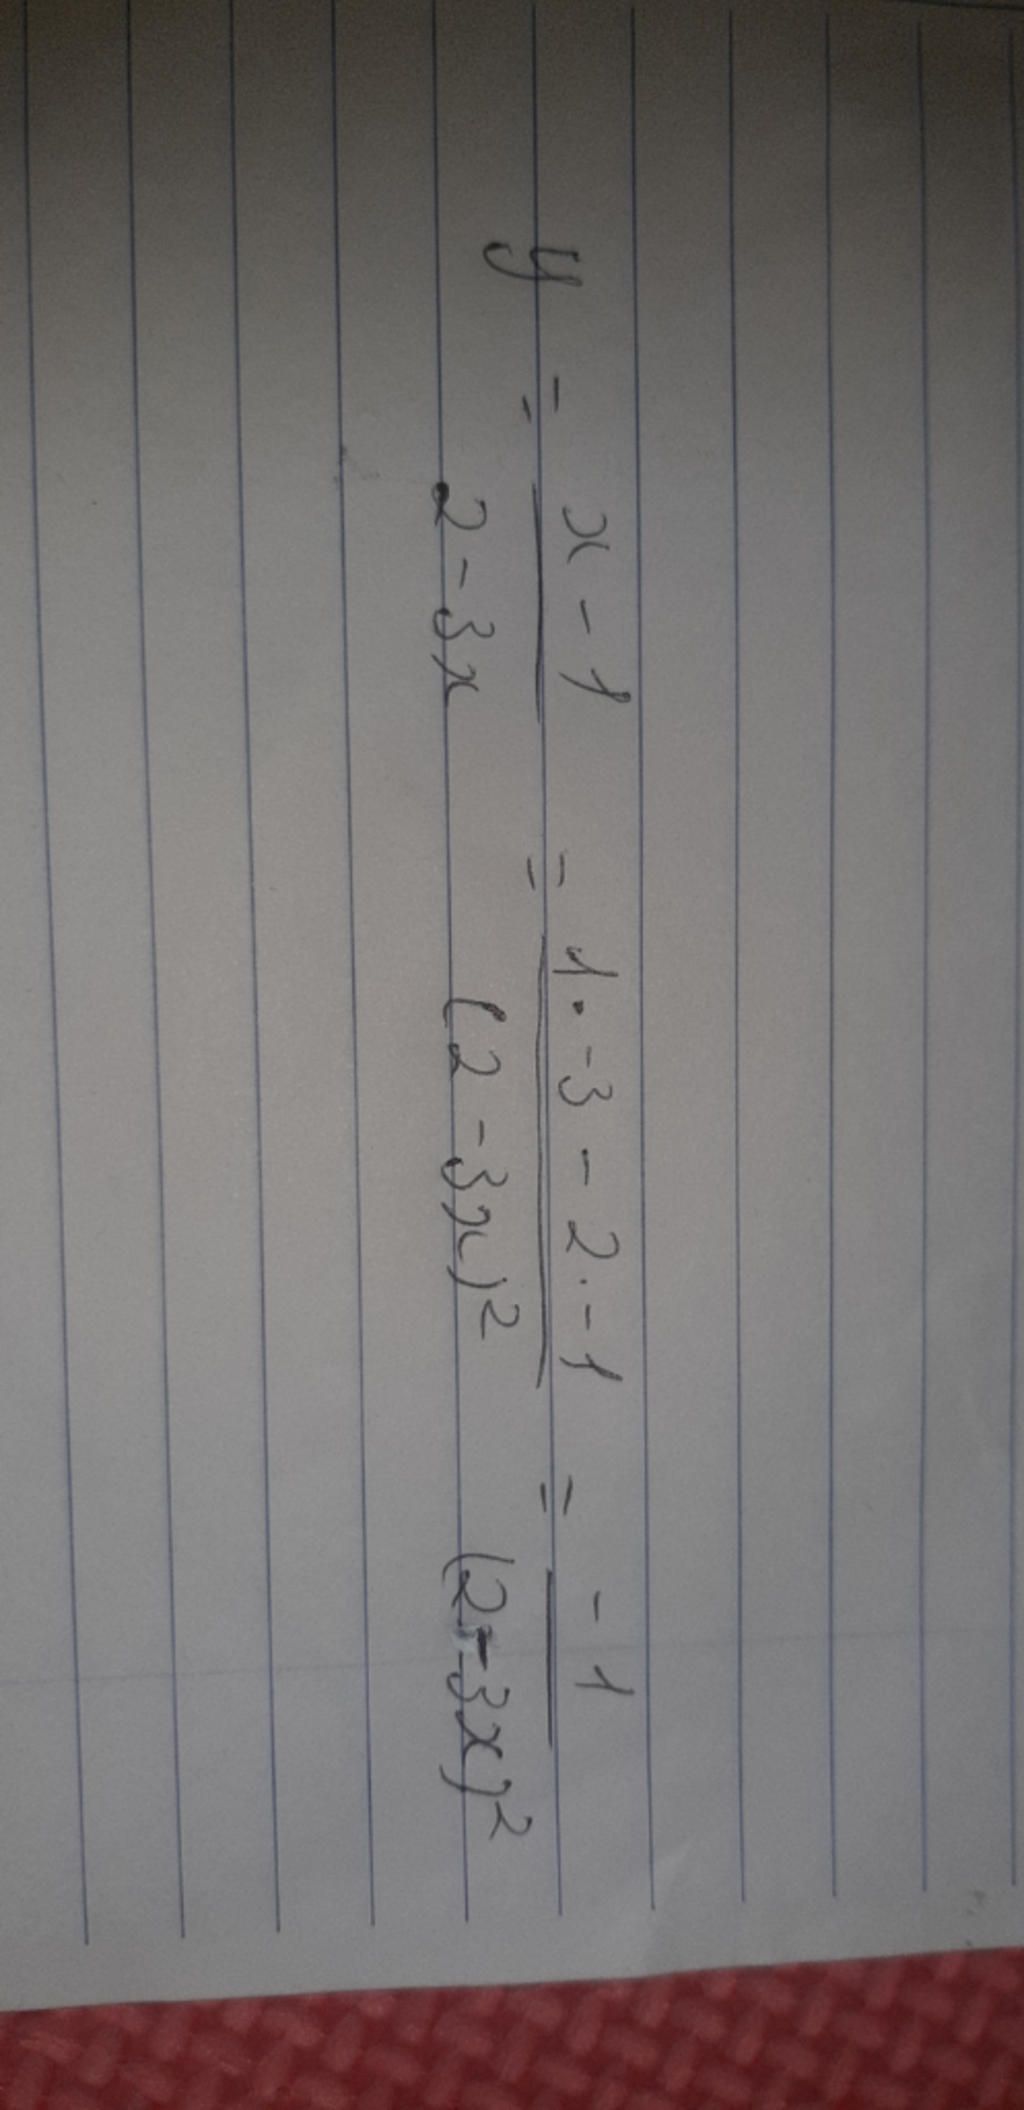 y = x - 1 / 2 - 3x = 1 · -3 - 2 · -1 / (2 - 3x)² = -1 / (2 - 3x)²